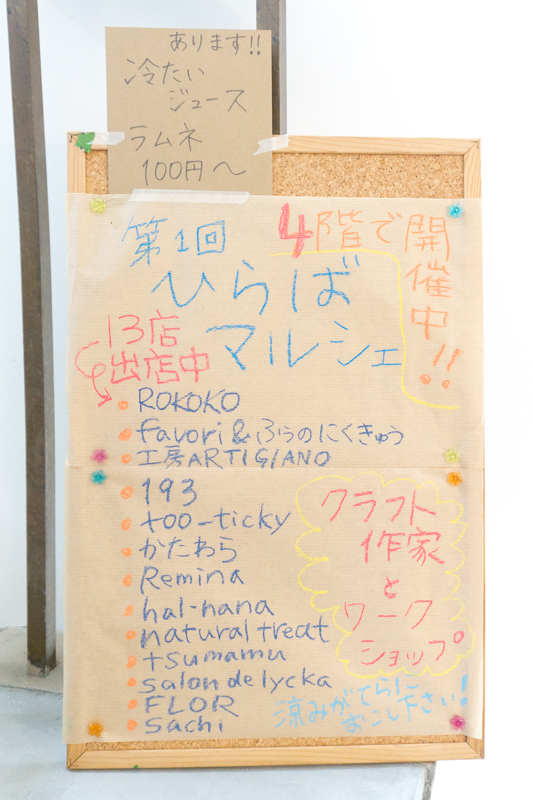 あります!!
冷たい
ジュース
ラムネ
100円〜
4階で開催中!!
第1回
ひらば
マルシェ
13店
出店中
ROKOKO
favori&ふうのにくきゅう
工房ARTIGIANO
193
too-ticky
かたわら
Remina
hal-hana
natural treat
tsumamu
salon de lycka
FLOR
sachi
クラフト
作家
と
ワーク
ショップ
涼みがてらに
おこし下さい!